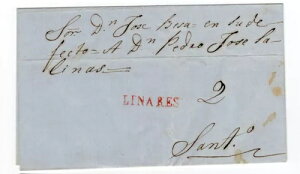 Sor Dn Jose Besa - en su de
fecto - A Dn Pedro Jose Sa-
linas -
LINARES
2
Santo